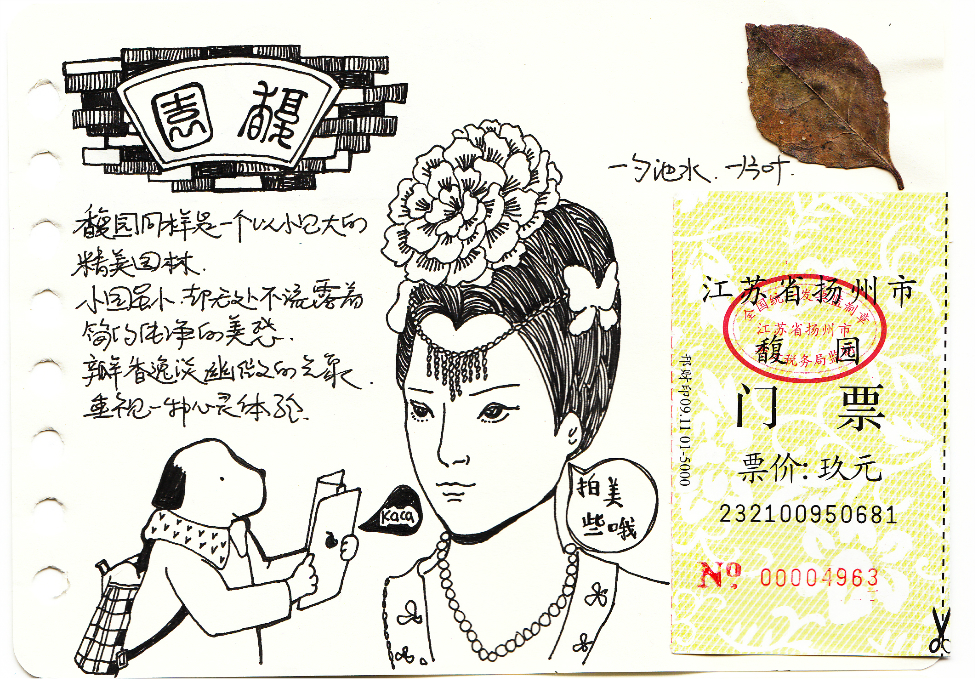 馥園
一勺池水.一片叶.
馥园同样是一个以小见大的
精美园林.
小园虽小 却无处不流露着
简约纯净的美感.
香逸淡幽的
重视一种心灵体验.
Kaca
拍美
些哦
江苏省扬州市
馥园
门票
票价: 玖元
232100950681
No 00004963
全国统发票制章
江苏省扬州市
税务局监制
09.11 01-5000